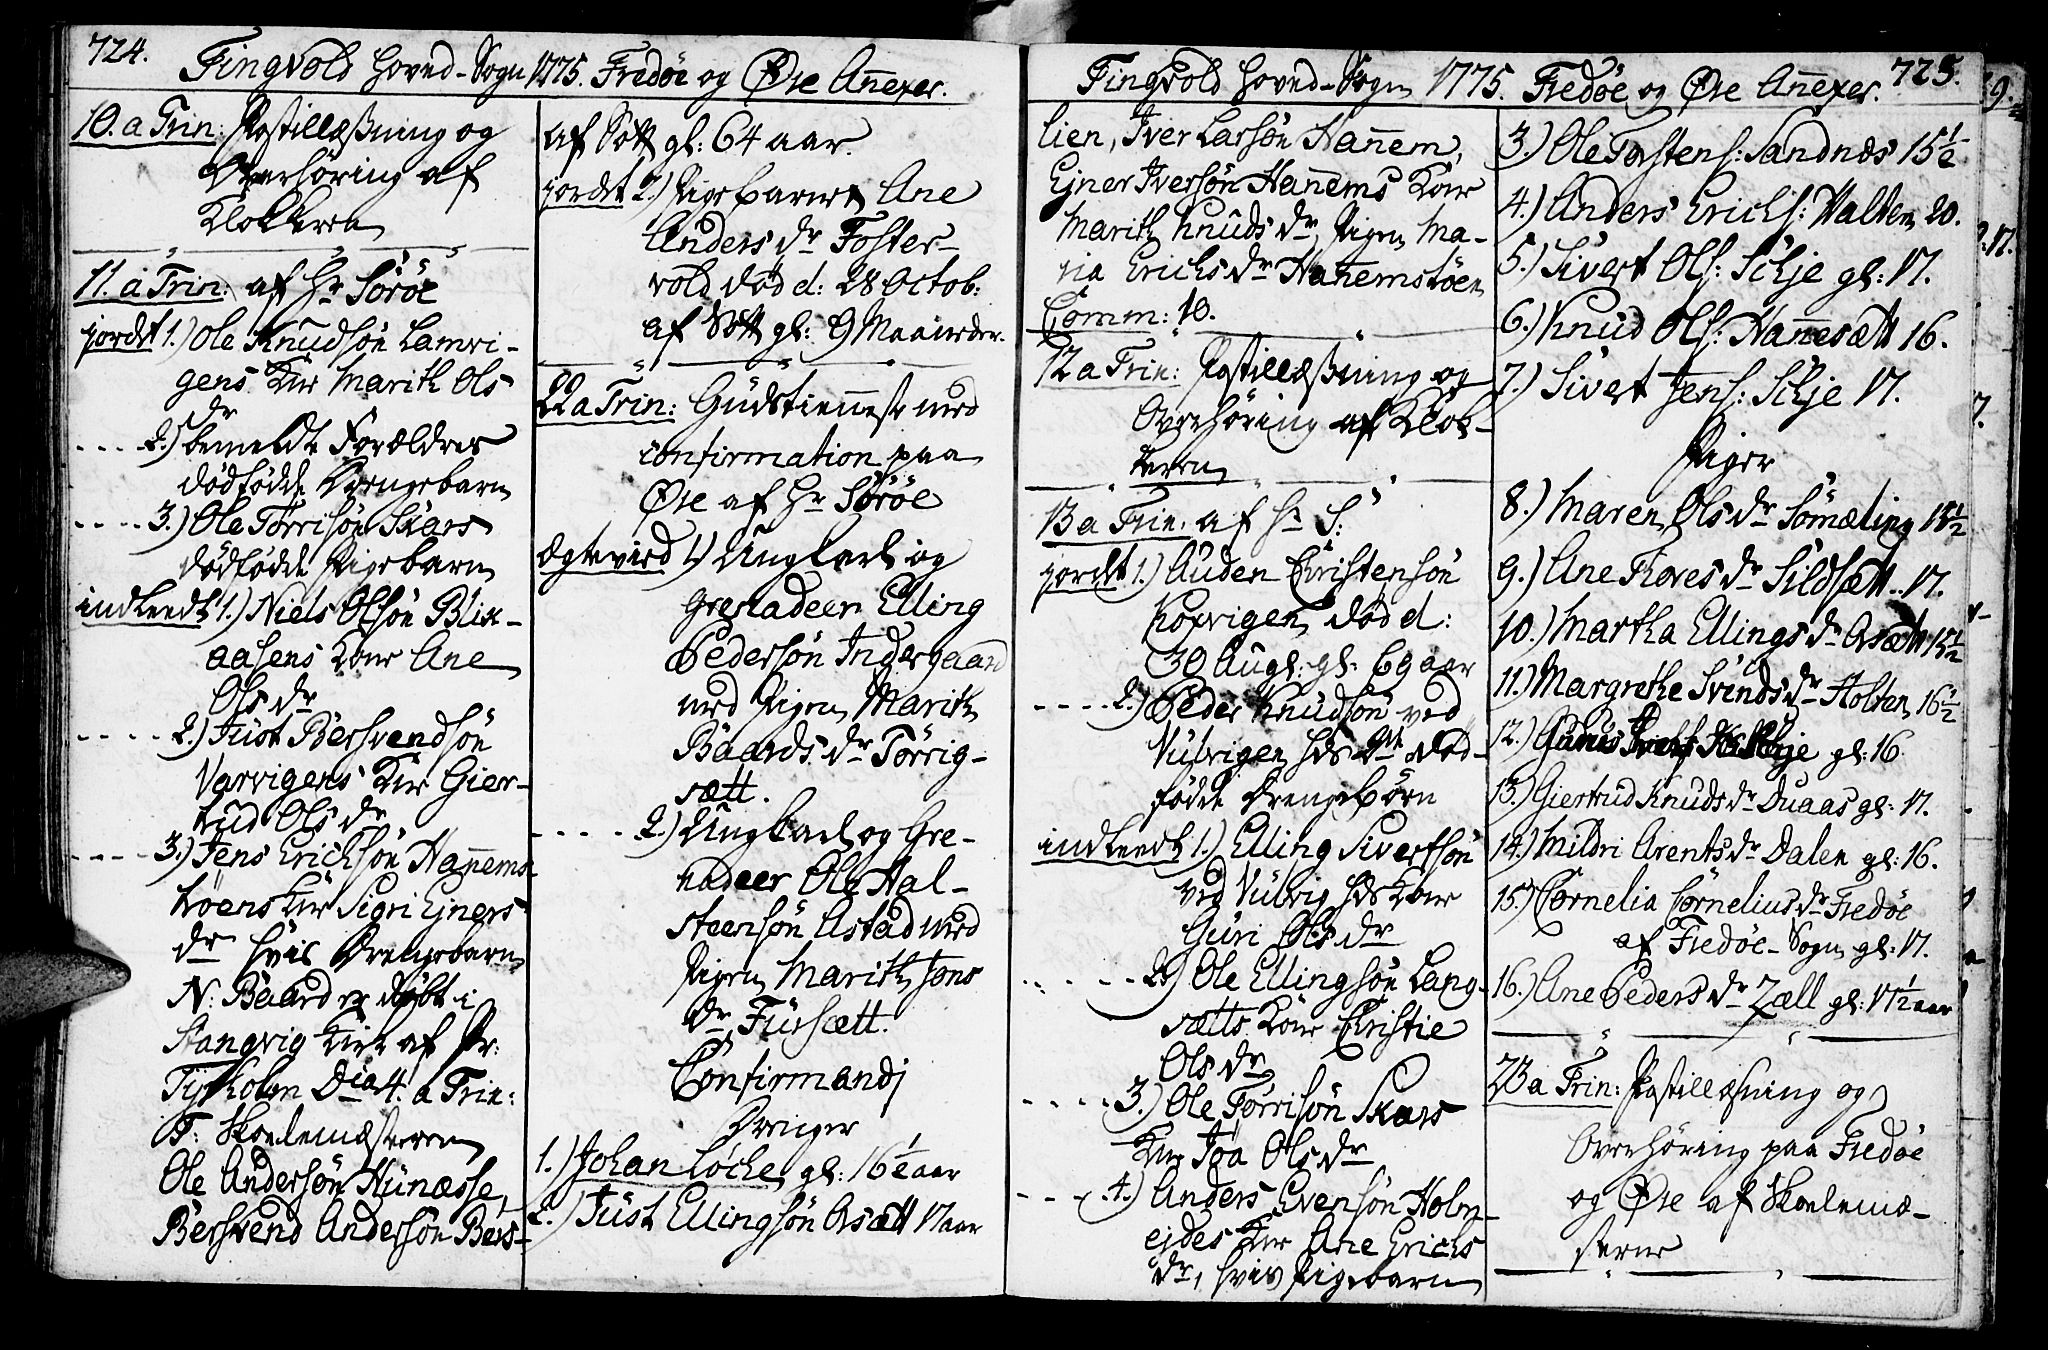 724. Tingvold Hoved-Sogn 1775. Fredöe og Øre Añexer.
10. a Trin: Postillæßning og
Overhöring af
Klokkeren
11. a Trin: af Hr Söröe
jordet 1.) Ole Knudsön Lamvi-
gens Kne Marith Ols
dr
2.) bemeldte Forældres
dödfödde Drengebarn
3.) Ole Törrisön Skars
dödfödde Pigebarn
indleedt 1.) Niels Olsön Blik-
aasens Kone Ane
Ols dr
2.) Just Bersvendsön
Varvigens Kne Gier-
trud Ols dr
3.) Jens Ericksön Hañems-
töens Kne Sigri Ejners
dr hvis Drengebarn
N: Baard er döbt i
Stangvig Kirke af Pr:
Tyrholm Dca 4. a Trin:
F: Skoelemæsteren
Ole Andersön Hunæsse,
Bersvend Andersön Bers-
af Sott gl: 64 aar.
jordet 2.) Pigebarnet Ane
Anders dr Foster-
vold död d: 28 Octob:
af Sott gl: 9 Maaneder.
22 a Trin: Gudstienneste med
confirmation paa
Øre af Hr Söröe
ægtevied 1.) Ungkarl og
Grenadeer Elling
Pedersön Indergaard
med Pigen Marith
Baards dr Törrig-
sætt.
2.) Ungkarl og Gre-
nadeer Ole Hal-
steensön Astad med
Pigen Marith Jons
dr Fürsætt.
Confirmandj
Drenger
1.) Johan Löche gl: 16 1/2 aar
2.) Just Ellingsön Aasætt 17 aar
Tingvold Hoved-Sogn 1775. Fredöe og Øre Añexer. 725.
lien, Iver Larsön Hañem,
Ejner Iversön Hañems Kone
Marith Knuds dr, Pigen Ma-
ria Erichs dr Hañemstöen
Comm: 10.
12 a Trin: Postillæßning og
Overhöring af Klok-
keren
13 a Trin: af Hr S:
jordet 1.) Auden Christensön
Kopvigen död d:
30 Aug: gl: 69 aar
2.) Peder Knudsön ved
Vulvigen hds 2de död-
födde Drengebörn
indleedt 1.) Elling Sivertsön
ved Vulvig hds Kone
Guri Ols dr
2.) Ole Ellingsön Lang-
sætts Kone Christie
Ols dr
3.) Ole Törrisön Skars
Kne Joa Ols dr
4.) Anders Evensön Holm-
ejdes Kne Ane Erichs
dr, hvis Pigebarn
3.) Ole Torstens: Sandnæs 15 1/2
4.) Anders Erichs: Halten 20.
5.) Sivert Ols: Schje gl: 17.
6.) Knud Ols: Hañesætt 16.
7.) Sivert Jens: Schje 17.
Piger
8.) Maren Ols dr Sömæling 18 1/2
9.) Ane Tores dr Sildsætt.. 17.
10.) Martha Ellings dr Aasætt 15 1/2
11.) Margrethe Svends dr Holten 16 1/2
12.) gl: 16
13.) Giertrud Knuds dr Duaas gl: 17.
14.) Mildri Arents dr Dalen gl: 16.
15.) Cornelia Cörnelius dr Fredöe
af Fredöe-Sogn gl: 17.
16.) Ane Peders dr Zæll gl: 17 1/2 aar
23 a Trin: Postillæsning og
Overhöring paa Fredöe
og Øre af Skoelemæ-
sterne